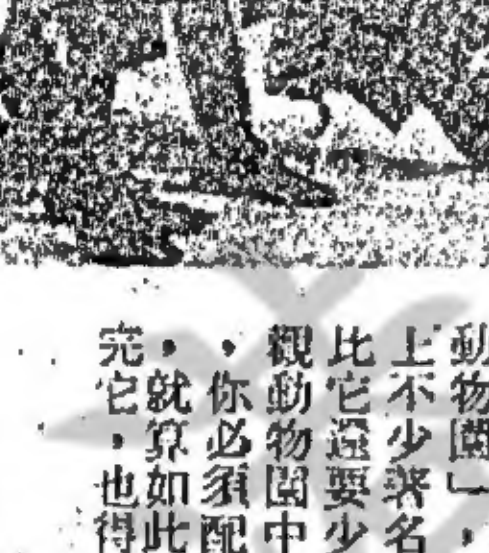 動物園」，
上不少著名
比它還要少
觀動物園中
，你必須配
，就算如此
完它，也得